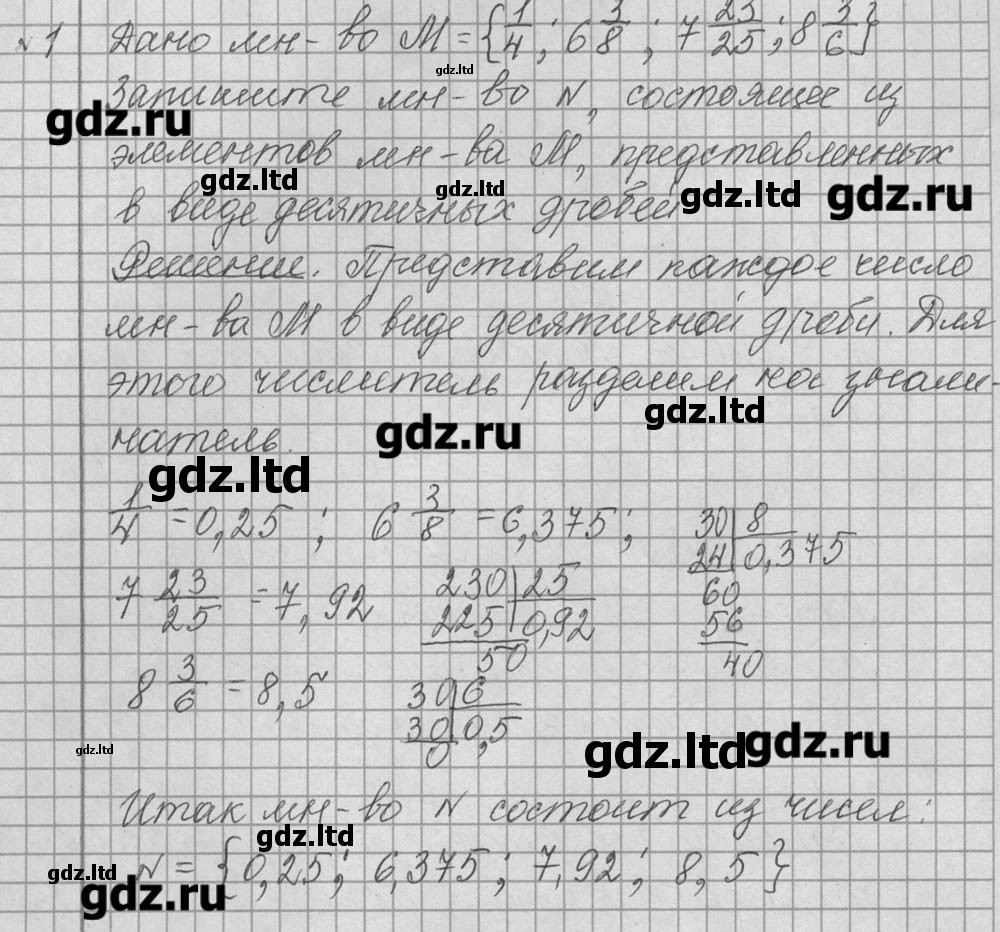 №1 Дано мн-во M = {1/4; 6 3/8; 7 23/25; 8 3/6}
gdz.ltd
Запишите мн-во N, состоящее из
gdz.ru
элементов мн-ва M, представленных
gdz.ltd gdz.ltd gdz.ltd gdz.ru
в виде десятичных дробей
Решение. Представим каждое число
мн-ва M в виде десятичной дроби. Для
этого числитель разделим на знаме-
gdz.ltd
натель.
gdz.ru
gdz.ltd
1/4 = 0,25 ; 6 3/8 = 6,375 ; 30 | 8
24 | 0,375
60
56
40
7 23/25 = 7,92 230 | 25
225 | 0,92
50
8 3/6 = 8,5 30 | 6
30 | 0,5
0
gdz.ltd gdz.ltd gdz.ru
Итак мн-во N состоит из чисел:
gdz.ltd
N = {0,25; 6,375; 7,92; 8,5}
gdz.ltd
gdz.ru